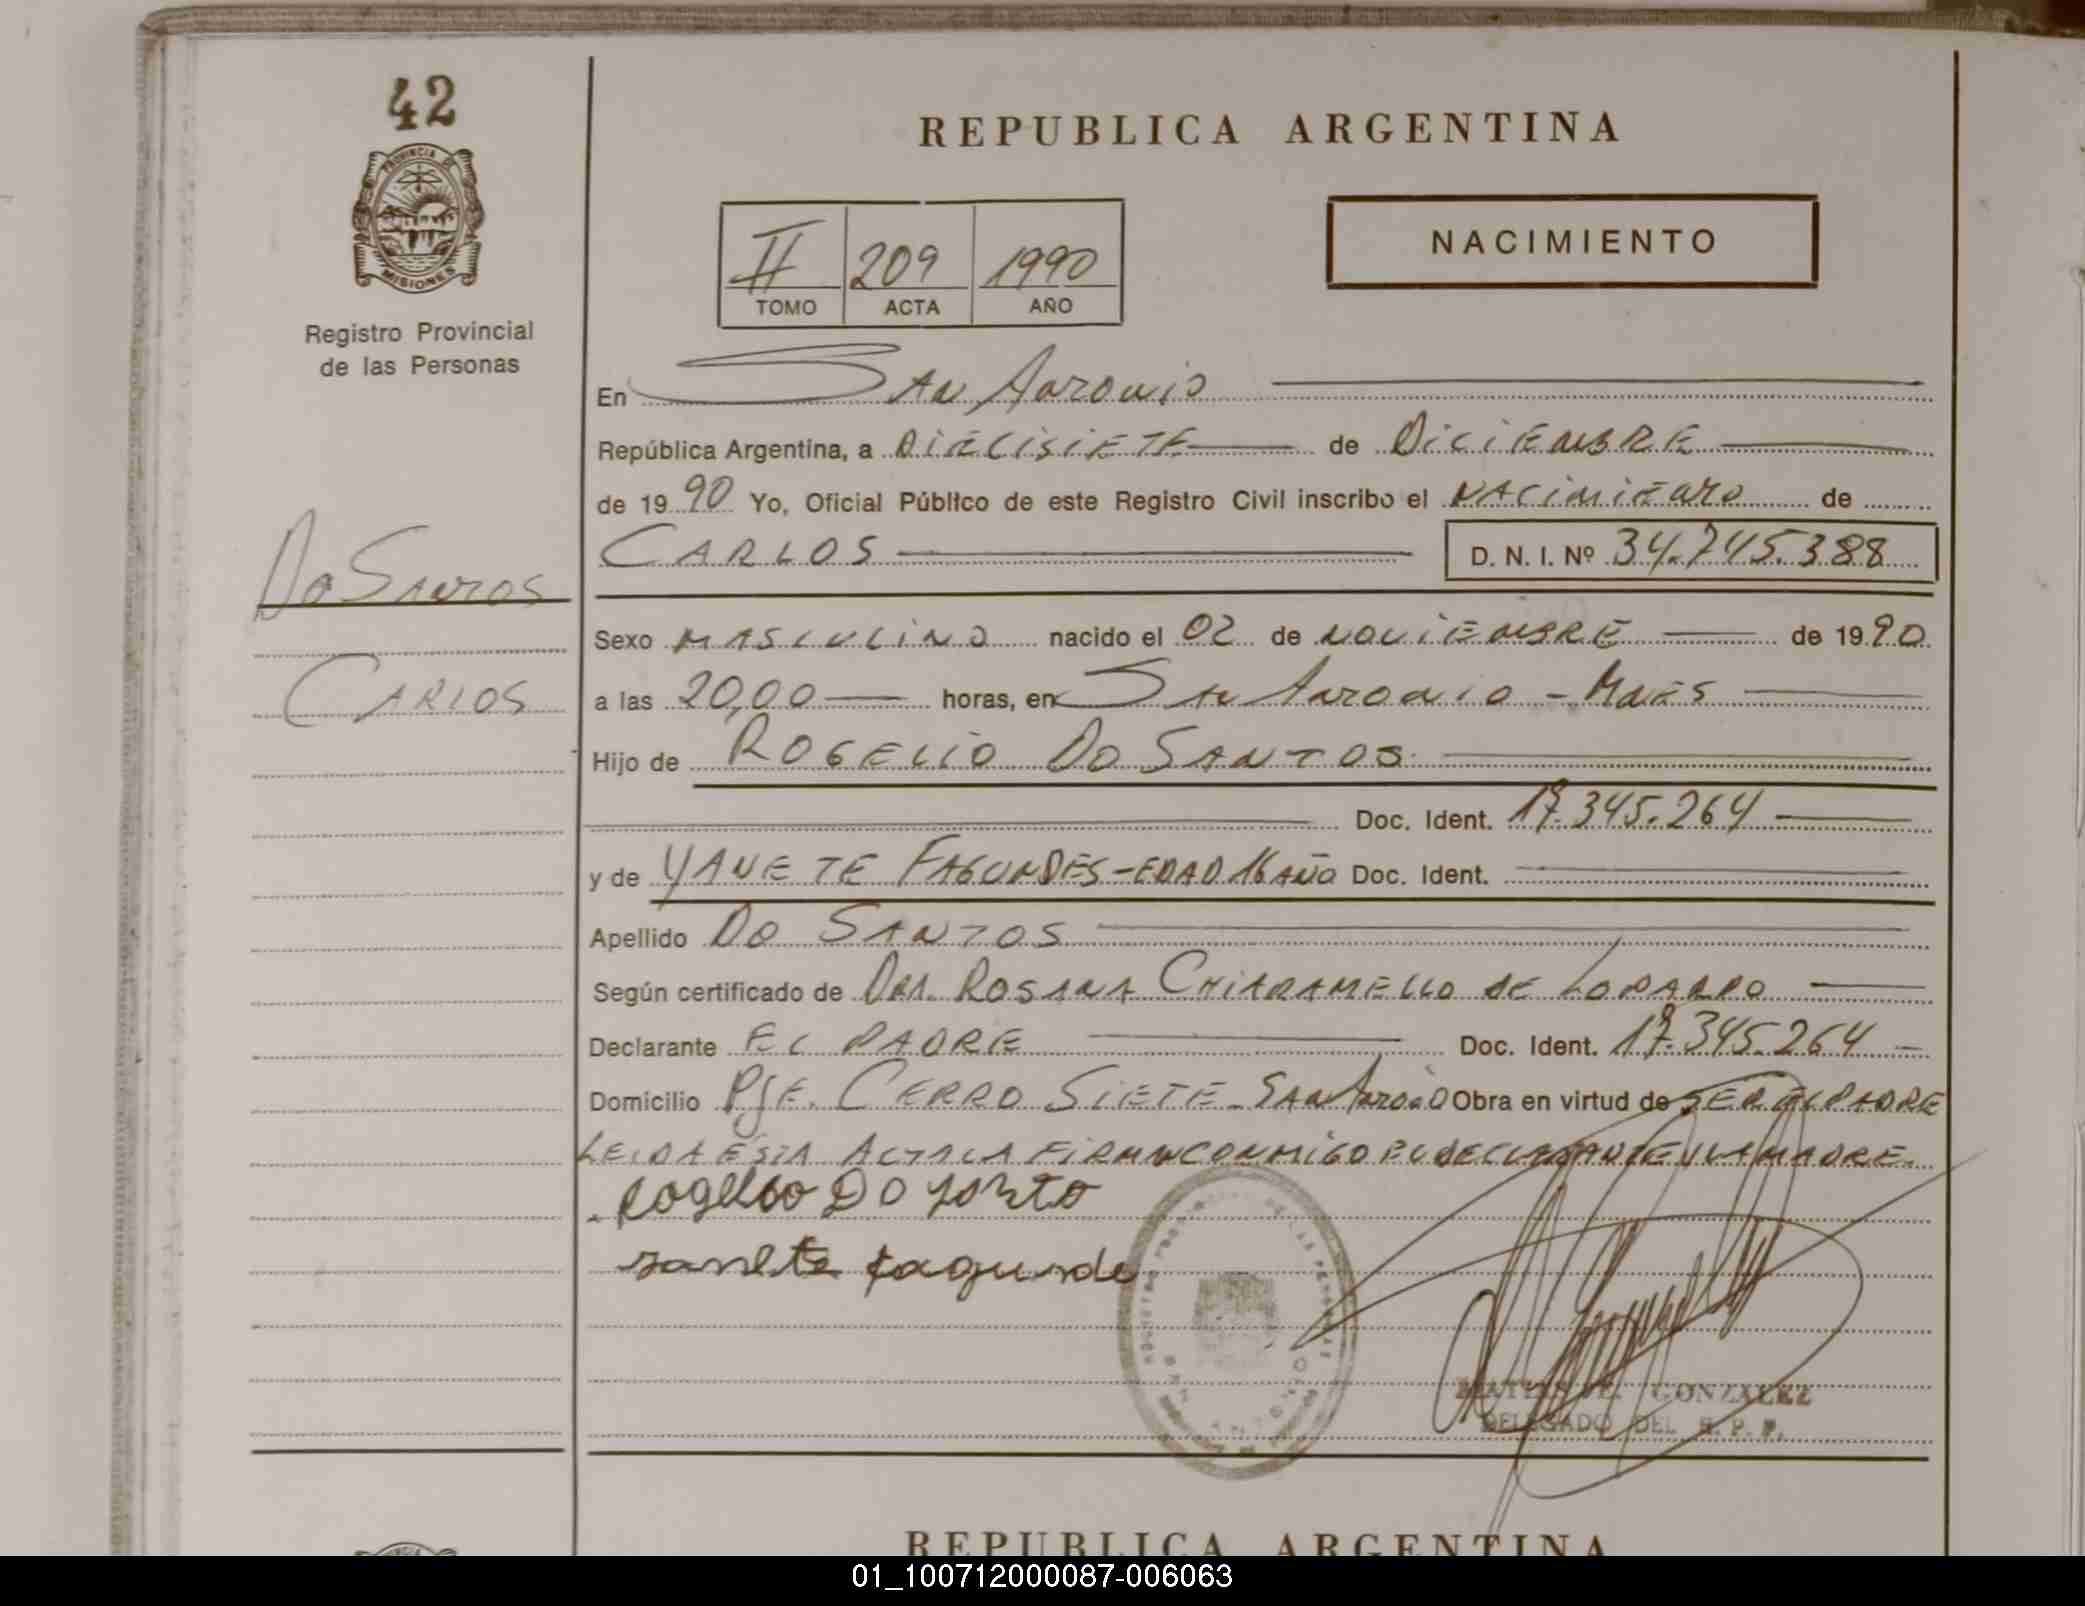 42
PROVINCIA DE
MISIONES
Registro Provincial
de las Personas
Do Santos
CARLOS
REPUBLICA ARGENTINA
NACIMIENTO
II 209 1990
TOMO ACTA AÑO
En San Antonio
República Argentina, a DIECISIETE de DICIEMBRE
de 1990 Yo, Oficial Público de este Registro Civil inscribo el NACIMIENTO de
CARLOS D. N. I. Nº 34.745.388
Sexo MASCULINO nacido el 02 de NOVIEMBRE de 1990
a las 20,00 horas, en San Antonio - Mnes
Hijo de ROGELIO DO SANTOS
Doc. Ident. .345.264
y de YANETE FAGUNDES - EDAD 16 AÑO Doc. Ident.
Apellido DO SANTOS
Según certificado de DRA. ROSANA CHIARAMELLO DE
Declarante EL PADRE Doc. Ident. .345.264
Domicilio PJE. CERRO SIETE - San Antonio Obra en virtud de SER EL PADRE
LEIDA ESTA ACTA LA FIRMAN CONMIGO EL DECLARANTE Y LA MADRE.
Rogelio Do
fagunde
GONZALEZ
DELEGADO DEL R. P. P.
REPUBLICA ARGENTINA
01_100712000087-006063